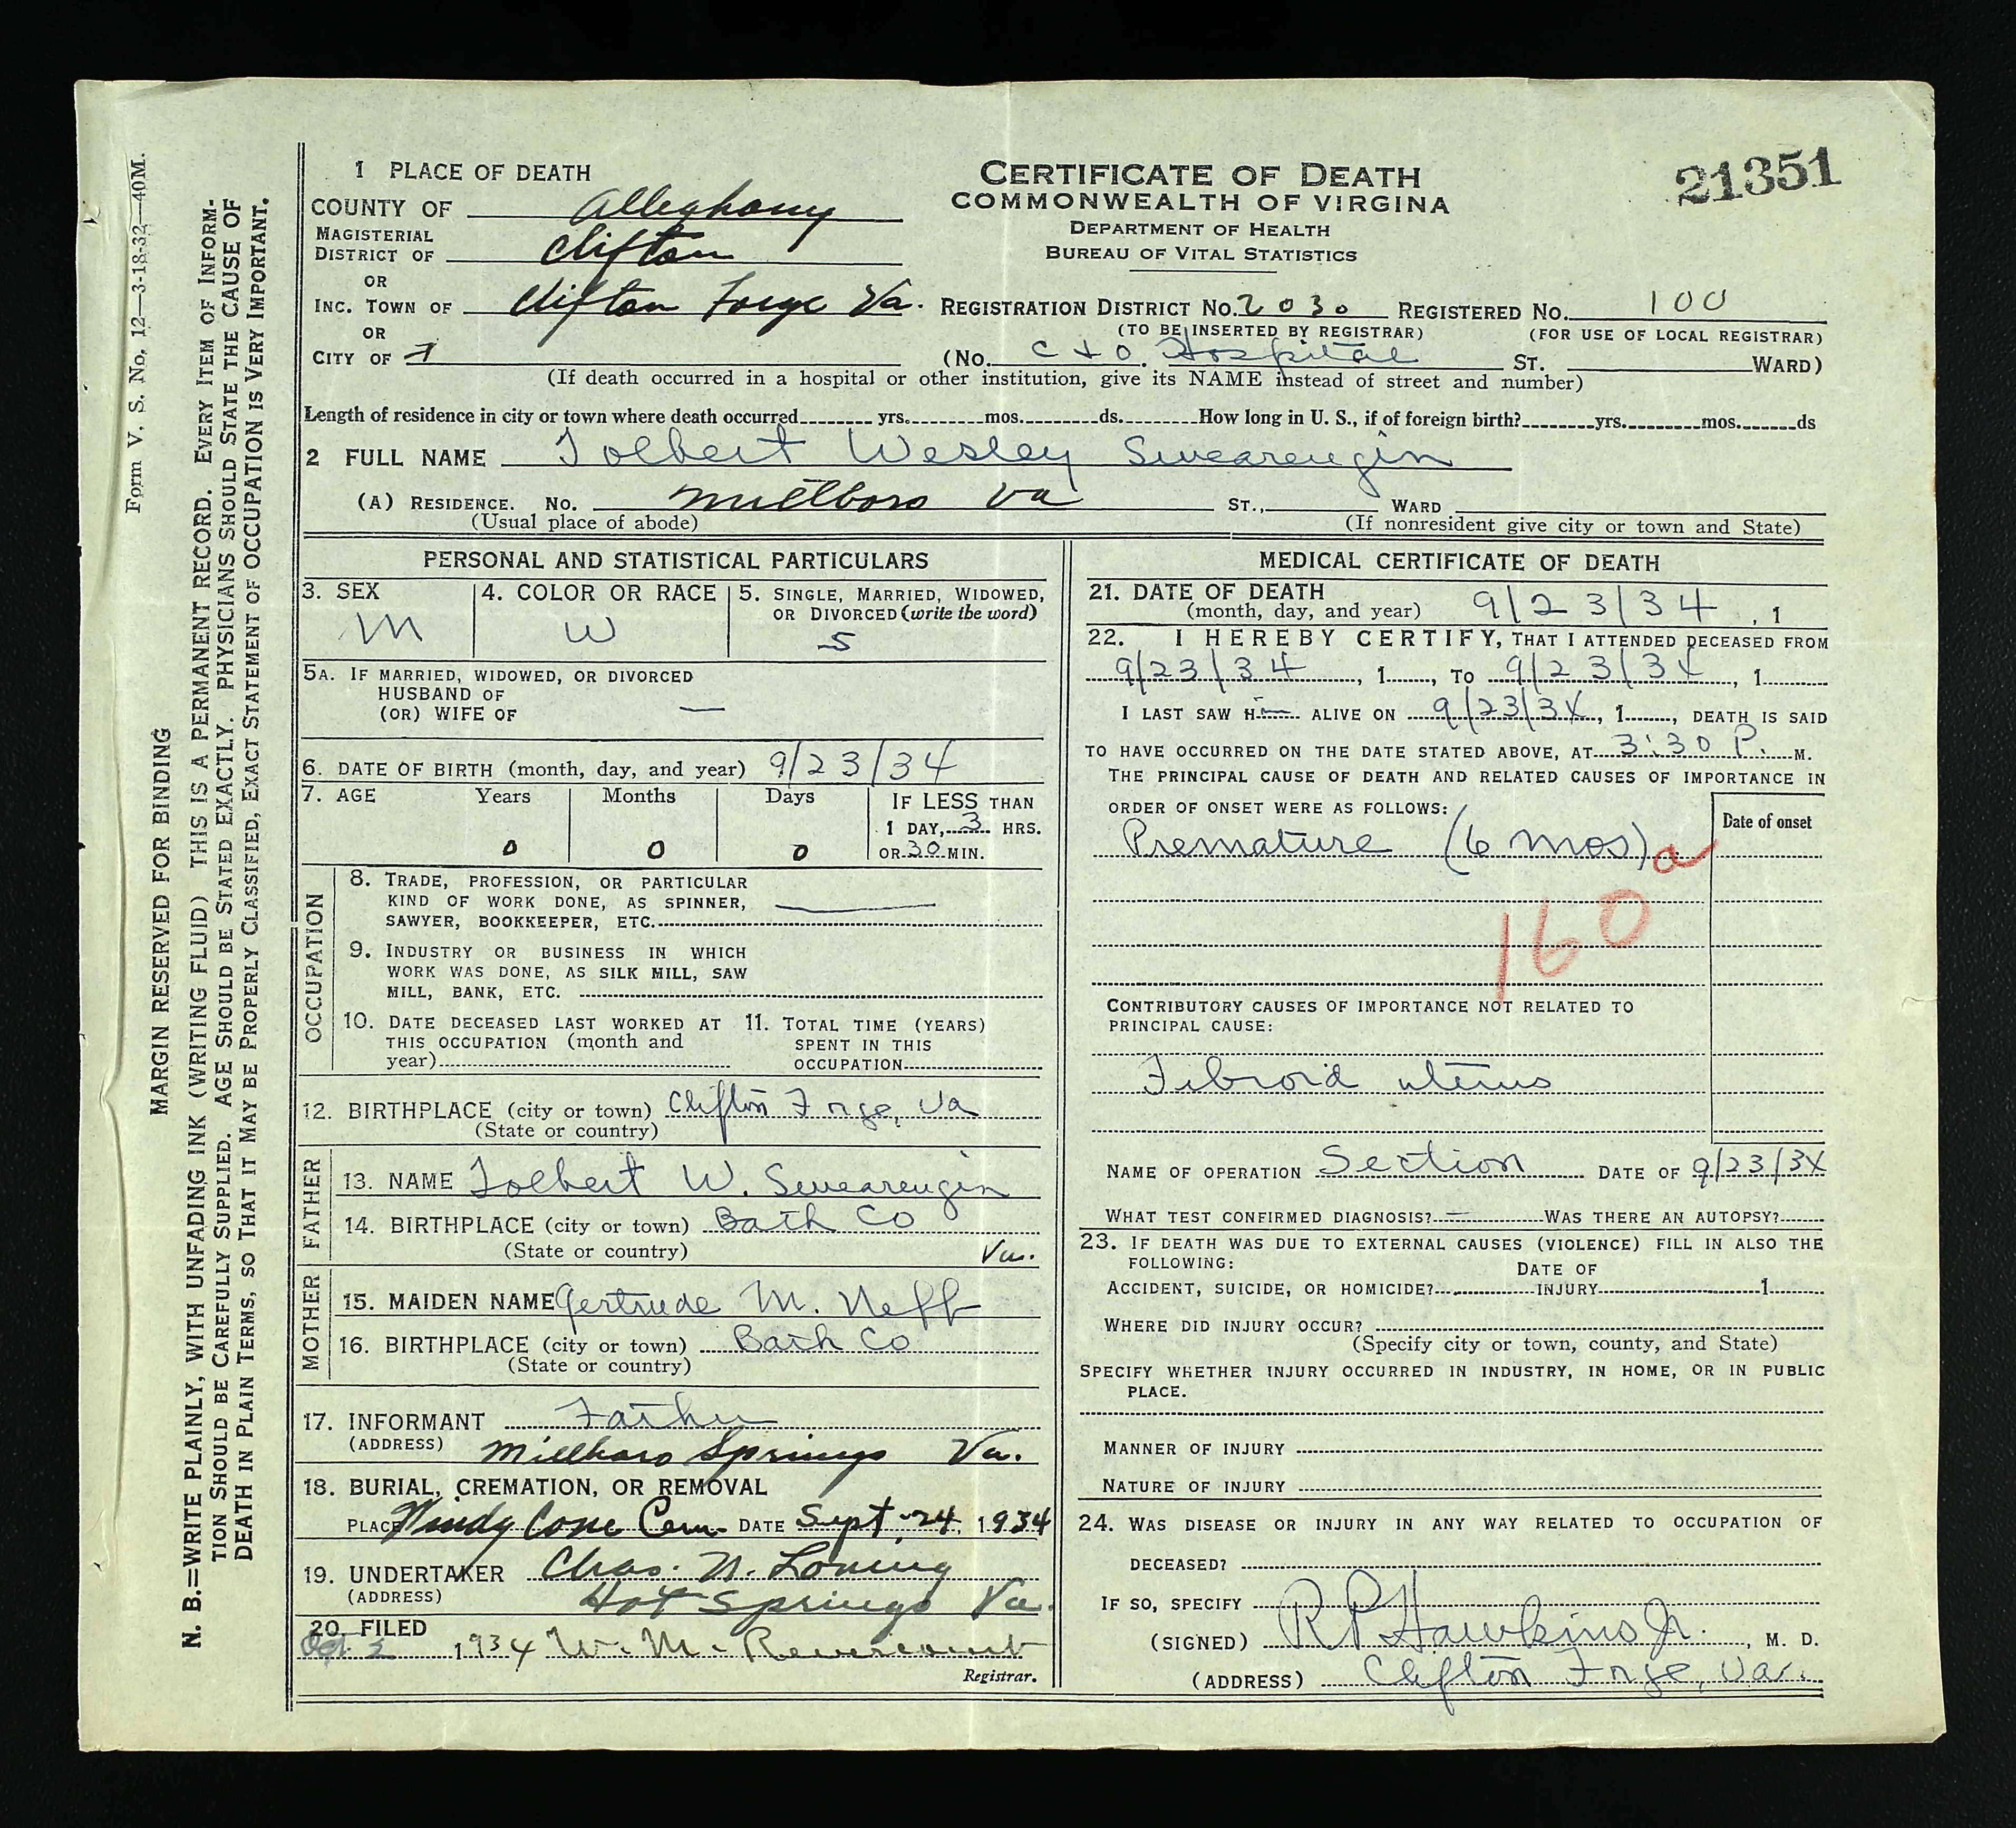 Form V. S. No. 12—3-18-32—40M.
MARGIN RESERVED FOR BINDING
N. B.=WRITE PLAINLY, WITH UNFADING INK (WRITING FLUID) THIS IS A PERMANENT RECORD. EVERY ITEM OF INFORM-
TION SHOULD BE CAREFULLY SUPPLIED. AGE SHOULD BE STATED EXACTLY. PHYSICIANS SHOULD STATE THE CAUSE OF
DEATH IN PLAIN TERMS, SO THAT IT MAY BE PROPERLY CLASSIFIED, EXACT STATEMENT OF OCCUPATION IS VERY IMPORTANT.
CERTIFICATE OF DEATH
COMMONWEALTH OF VIRGINA
DEPARTMENT OF HEALTH
BUREAU OF VITAL STATISTICS
21351
1 PLACE OF DEATH
COUNTY OF Alleghany
MAGISTERIAL
DISTRICT OF Clifton
OR
INC. TOWN OF Clifton Forge Va. REGISTRATION DISTRICT NO. 2030 REGISTERED NO. 100
OR (TO BE INSERTED BY REGISTRAR) (FOR USE OF LOCAL REGISTRAR)
CITY OF (NO. C + O. Hospital ST. WARD)
(If death occurred in a hospital or other institution, give its NAME instead of street and number)
Length of residence in city or town where death occurred yrs. mos. ds. How long in U. S., if of foreign birth? yrs. mos. ds
2 FULL NAME Tolbert Wesley Swearengin
(A) RESIDENCE. NO. Millboro Va ST., WARD
(Usual place of abode) (If nonresident give city or town and State)
PERSONAL AND STATISTICAL PARTICULARS
3. SEX 4. COLOR OR RACE 5. SINGLE, MARRIED, WIDOWED,
OR DIVORCED (write the word)
M W S
5A. IF MARRIED, WIDOWED, OR DIVORCED
HUSBAND OF
(OR) WIFE OF —
6. DATE OF BIRTH (month, day, and year) 9/23/34
7. AGE Years Months Days IF LESS THAN
1 DAY, 3 HRS.
0 0 0 OR 30 MIN.
OCCUPATION
8. TRADE, PROFESSION, OR PARTICULAR
KIND OF WORK DONE, AS SPINNER,
SAWYER, BOOKKEEPER, ETC.
9. INDUSTRY OR BUSINESS IN WHICH
WORK WAS DONE, AS SILK MILL, SAW
MILL, BANK, ETC.
10. DATE DECEASED LAST WORKED AT 11. TOTAL TIME (YEARS)
THIS OCCUPATION (month and SPENT IN THIS
year) OCCUPATION
12. BIRTHPLACE (city or town) Clifton Forge, Va
(State or country)
FATHER
13. NAME Tolbert W. Swearengin
14. BIRTHPLACE (city or town) Bath Co
(State or country) Va.
MOTHER
15. MAIDEN NAME Gertrude M. Neff
16. BIRTHPLACE (city or town) Bath Co
(State or country)
17. INFORMANT Father
(ADDRESS) Millboro Springs Va.
18. BURIAL, CREMATION, OR REMOVAL
PLACE Windy Cove Cem. DATE Sept. 24, 1934
19. UNDERTAKER Chas. N. Loving
(ADDRESS) Hot Springs Va.
20. FILED
Oct 2 1934 W. M. Revercomb
Registrar.
MEDICAL CERTIFICATE OF DEATH
21. DATE OF DEATH
(month, day, and year) 9/23/34, 1
22. I HEREBY CERTIFY, THAT I ATTENDED DECEASED FROM
9/23/34, 1, TO 9/23/34, 1
I LAST SAW H ALIVE ON 9/23/34, 1, DEATH IS SAID
TO HAVE OCCURRED ON THE DATE STATED ABOVE, AT 3:30 P. M.
THE PRINCIPAL CAUSE OF DEATH AND RELATED CAUSES OF IMPORTANCE IN
ORDER OF ONSET WERE AS FOLLOWS: Date of onset
Premature (6 mos) a
160
CONTRIBUTORY CAUSES OF IMPORTANCE NOT RELATED TO
PRINCIPAL CAUSE:
Fibroid uterus
NAME OF OPERATION Section DATE OF 9/23/34
WHAT TEST CONFIRMED DIAGNOSIS? — WAS THERE AN AUTOPSY?
23. IF DEATH WAS DUE TO EXTERNAL CAUSES (VIOLENCE) FILL IN ALSO THE
FOLLOWING: DATE OF
ACCIDENT, SUICIDE, OR HOMICIDE? INJURY 1
WHERE DID INJURY OCCUR?
(Specify city or town, county, and State)
SPECIFY WHETHER INJURY OCCURRED IN INDUSTRY, IN HOME, OR IN PUBLIC
PLACE.
MANNER OF INJURY
NATURE OF INJURY
24. WAS DISEASE OR INJURY IN ANY WAY RELATED TO OCCUPATION OF
DECEASED?
IF SO, SPECIFY
(SIGNED) R P Hawkins Jr., M. D.
(ADDRESS) Clifton Forge, Va.